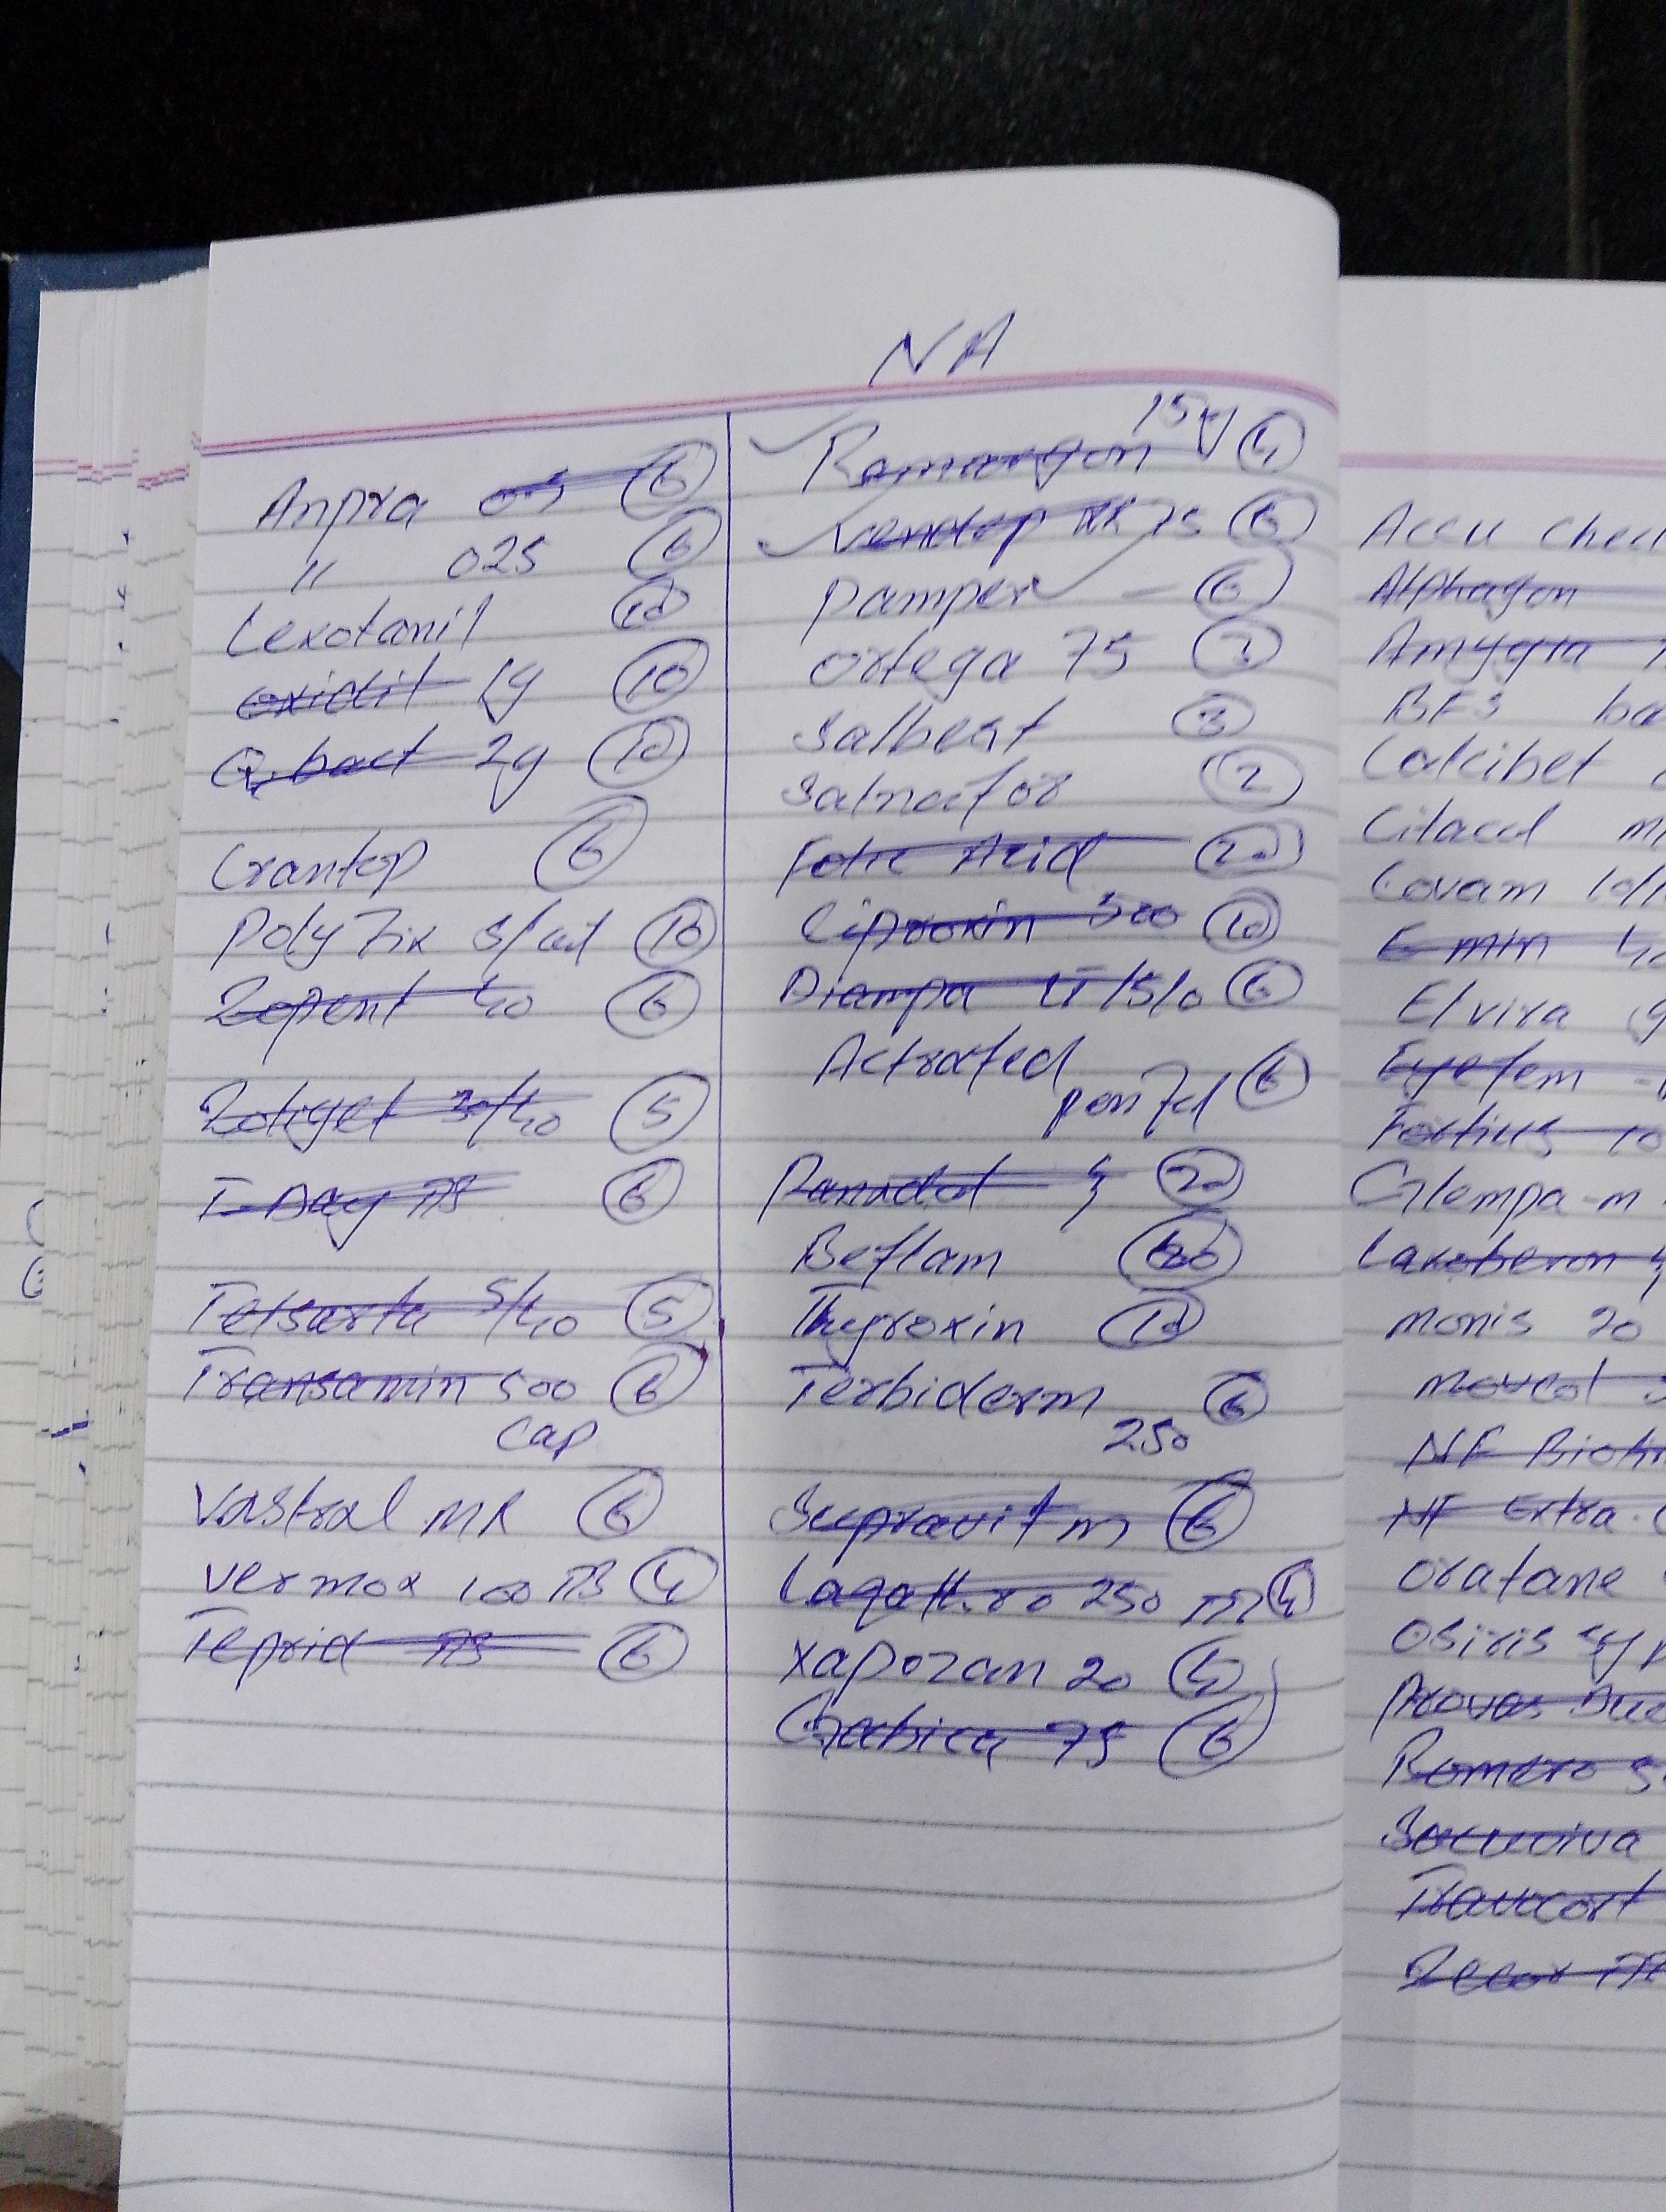 NA
Anpra 0.5 6
" 025 6
Lexotanil 10
oxidil 1g 10
Q. bact 2g 10
Crantop 6
Poly Fix s/ail 10
Zopent 40 6
Zoliget 30/40 5
T-Day TB 6
Telsarta 5/40 5
Transamin 500 6
cap
Vastral MR 6
Vermox 100 TB 4
Teprid TB 6
15g 4
Vendep XR 75 6
Pamper - 6
Ortega 75 2
Salbeat 3
Salnafor 2
Folic Acid 20
Ciproxin 500 10
Diampa 15/0 6
Actrafed
penfil 6
Panadol 20
Beflam
Thyroxin 10
Terbiderm 6
250
Supravit m 6
250 4
Xapozan 20 4
Gabica 75 6
Accu chec
Alphagon
Amygra
BFS ba
Calcibet
Citacol m
Covam 10/1
E-min 40
Elvira
Eyefem
Fortius 10
Glempa-m
Laxoberon
monis 20
NF Biotin
NF Extra
Oratane
Osiris syp
Provas Duo
Romero
Travocort